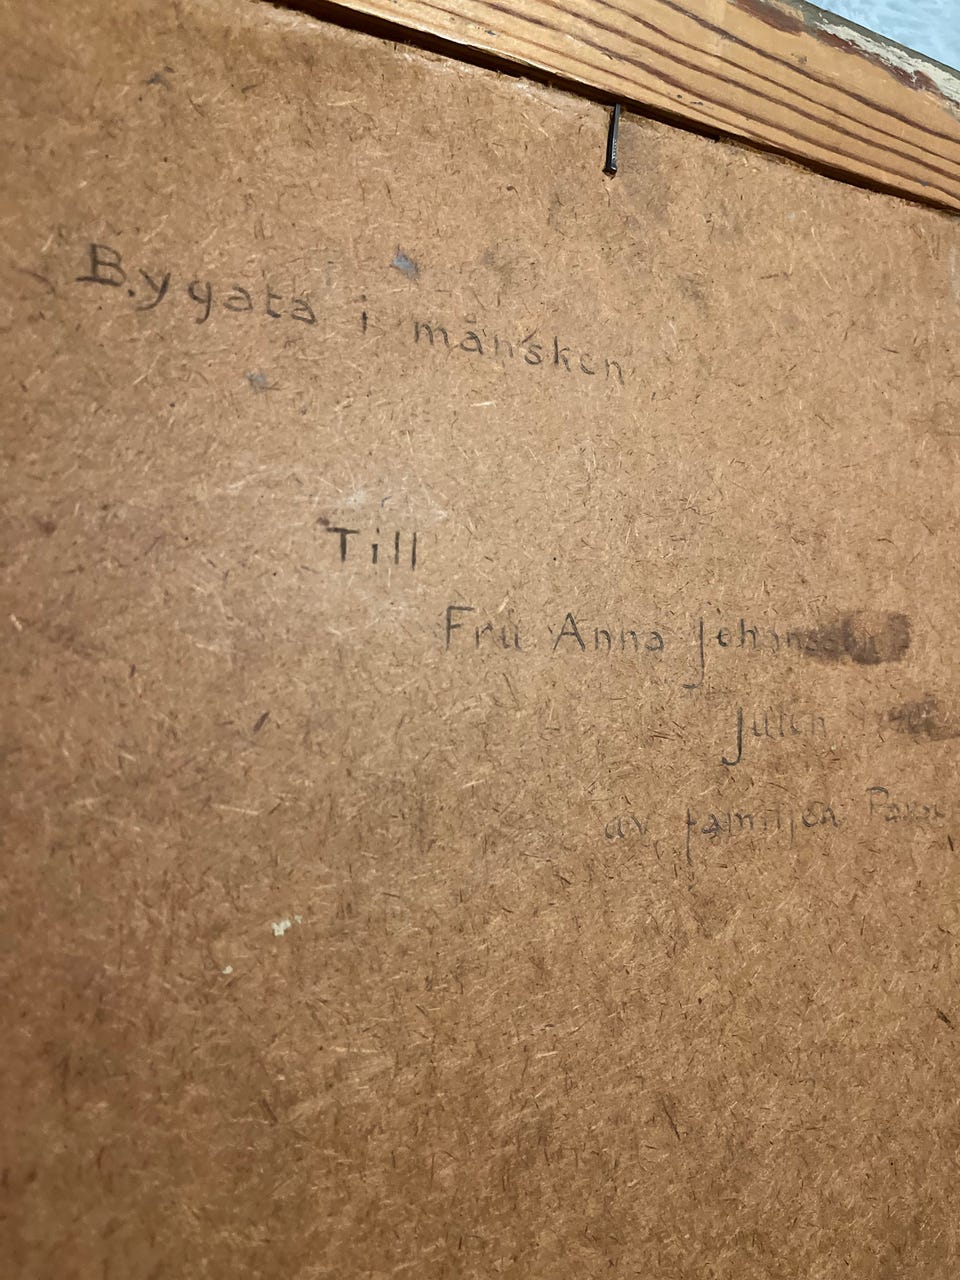 Bygata i månsken
Till
Fru Anna Johansson
Julen
av familjen